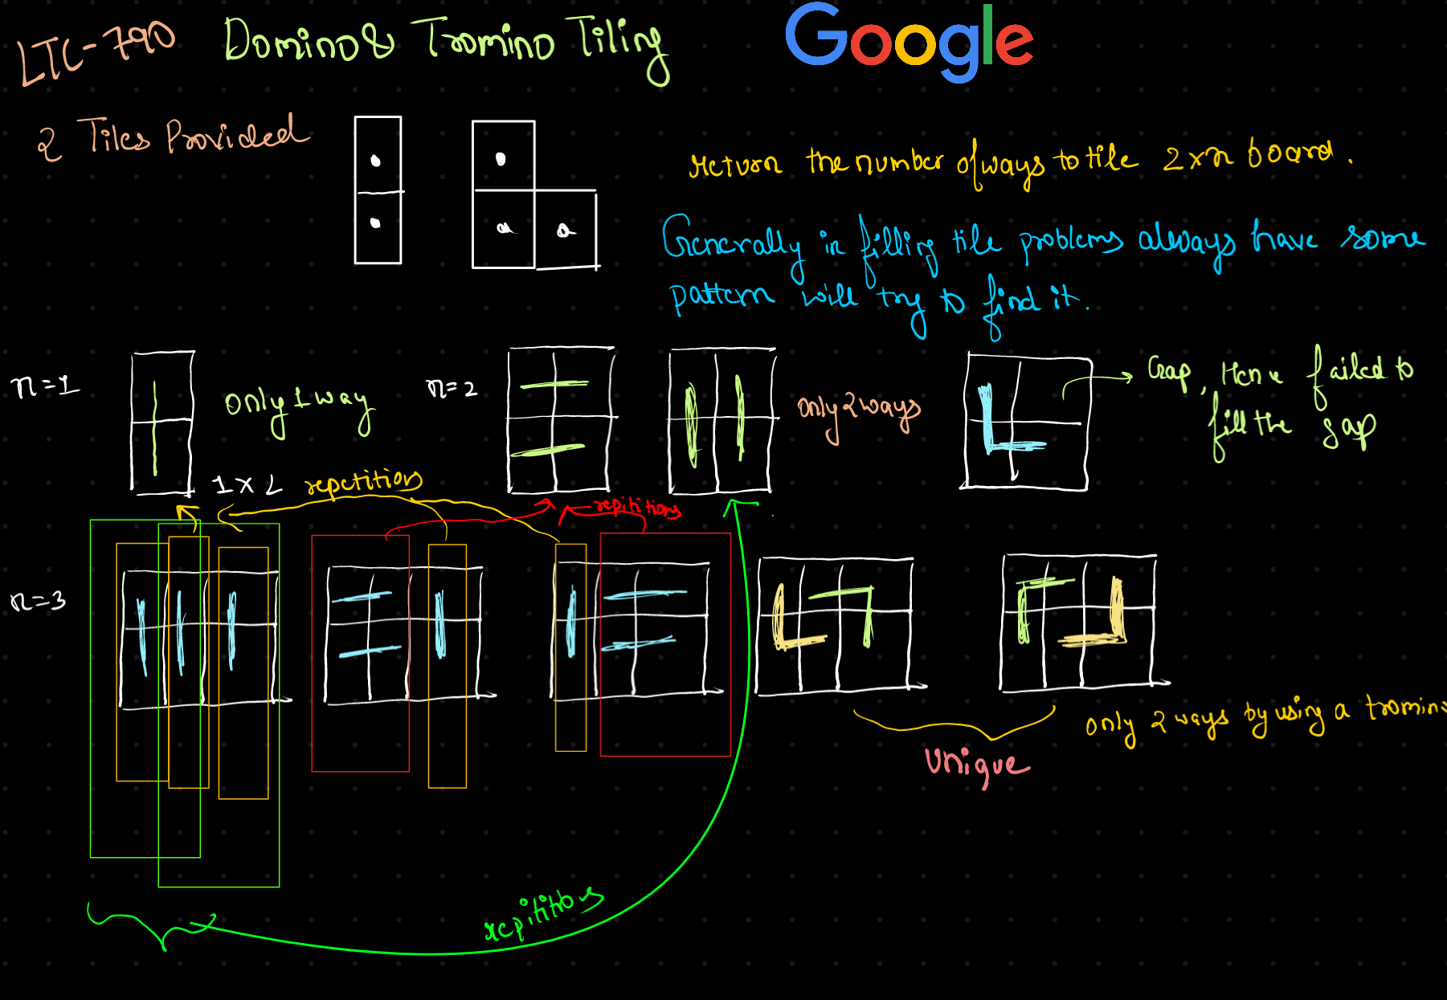 LTC-790 Domino & Tromino Tiling
Google
2 Tiles Provided
return the number of ways to tile 2xn board.
Generally in filling tile problems always have some
pattern will try to find it.
n=1
only 1 way
n=2
only 2 ways
Gap, Hence failed to
fill the gap
1 x 2 repetitions
repititions
n=3
only 2 ways by using a tromino
Unique
repititions